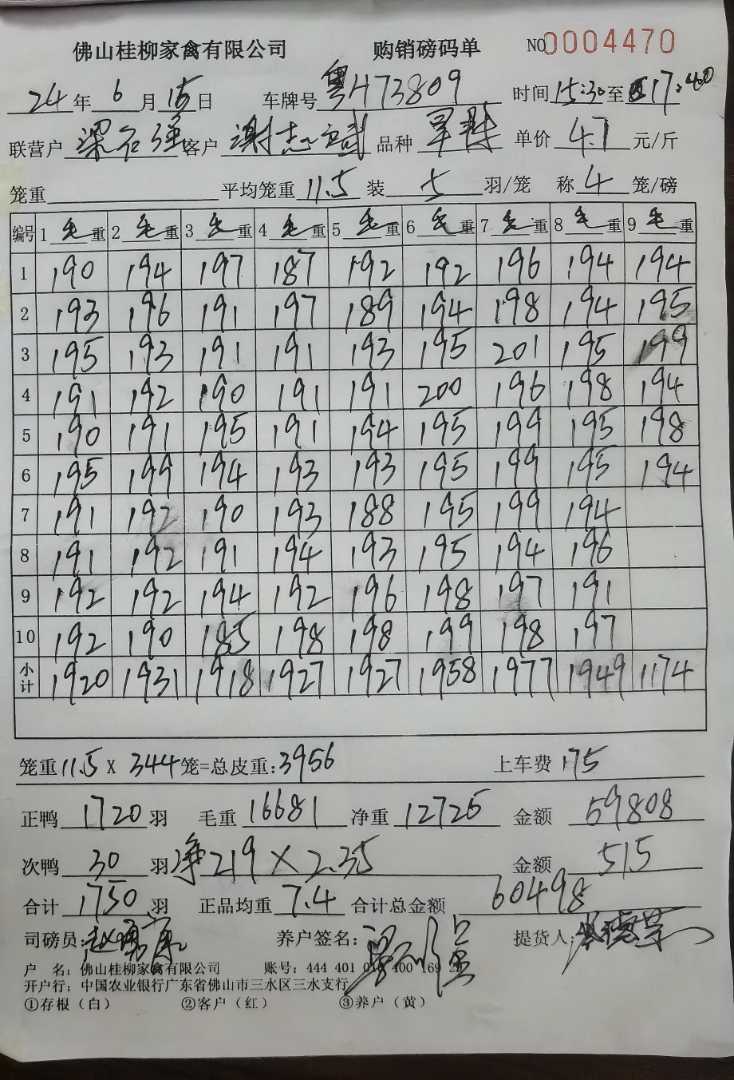 佛山桂柳家禽有限公司 购销磅码单 NO 0004470
24 年 6 月 15 日 车牌号 粤H73809 时间 15:30 至 17:40
联营户 梁石强 客户 谢志斌 品种 单价 4.7 元/斤
笼重 平均笼重 11.5 装 5 羽/笼 称 4 笼/磅
编号 1 毛重 2 毛重 3 毛重 4 毛重 5 毛重 6 毛重 7 毛重 8 毛重 9 毛重
1 190 194 197 187 192 192 196 194 194
2 193 196 191 197 189 194 198 194 195
3 195 193 191 191 193 195 201 195 199
4 191 192 190 191 191 200 196 198 194
5 190 191 195 191 194 195 199 195 198
6 195 199 194 193 193 195 199 195 194
7 191 192 190 193 188 195 199 194
8 191 192 191 194 193 195 194 196
9 192 192 194 192 196 198 197 191
10 192 190 185 198 198 199 198 197
小计 1920 1931 1918 1927 1927 1958 1977 1949 1174
笼重 11.5 X 344 笼=总皮重: 3956 上车费 175
正鸭 1720 羽 毛重 16681 净重 12725 金额 59808
次鸭 30 羽 净219×2.35 金额 515
合计 1750 羽 正品均重 7.4 合计总金额 60498
司磅员: 养户签名: 提货人:
户 名: 佛山桂柳家禽有限公司 账号: 444 401 400 169
开户行: 中国农业银行广东省佛山市三水区三水支行
①存根（白） ②客户（红） ③养户（黄）